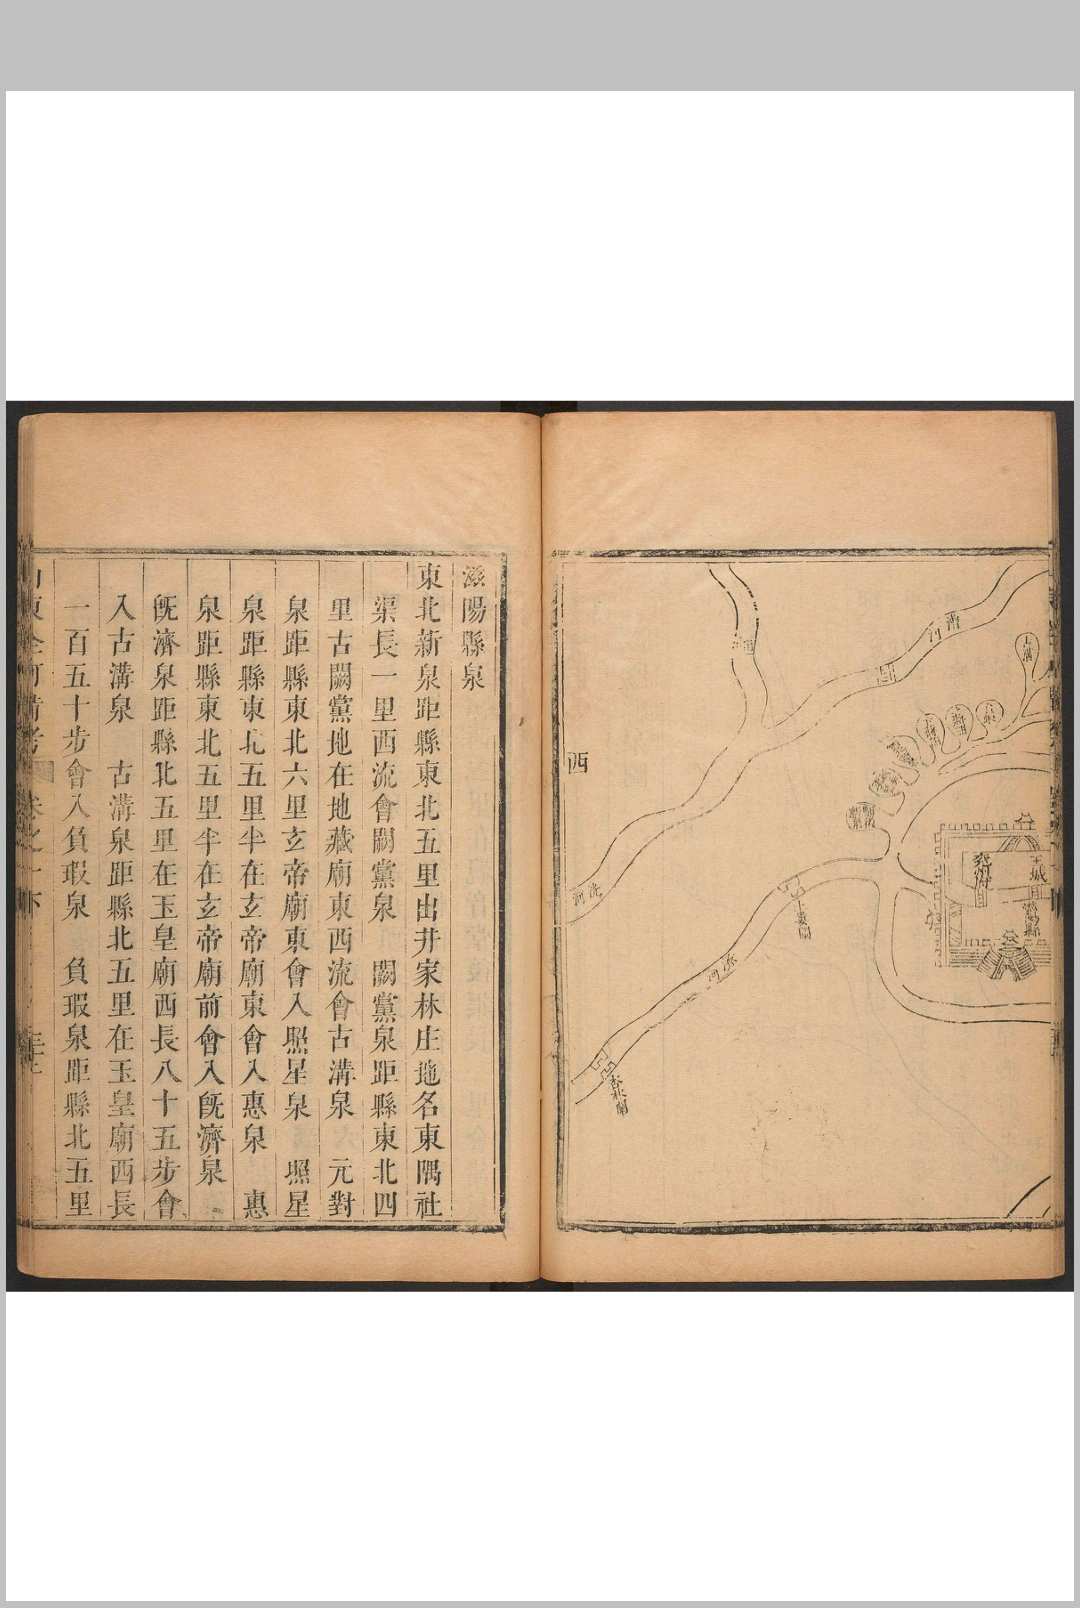 滋陽縣泉
東北新泉距縣東北五里出井家林庄地名東隅社
渠長一里西流會闕黨泉　闕黨泉距縣東北四
里古闕黨地在地藏廟東西流會古溝泉　元對
泉距縣東北六里玄帝廟東會入照星泉　照星
泉距縣東北五里半在玄帝廟東會入惠泉　惠
泉距縣東北五里半在玄帝廟前會入旣濟泉
旣濟泉距縣北五里在玉皇廟西長八十五步會
入古溝泉　古溝泉距縣北五里在玉皇廟西長
一百五十步會入負瑕泉　負瑕泉距縣北五里
山東全河備考
卷之一下
西
洸河
濟河